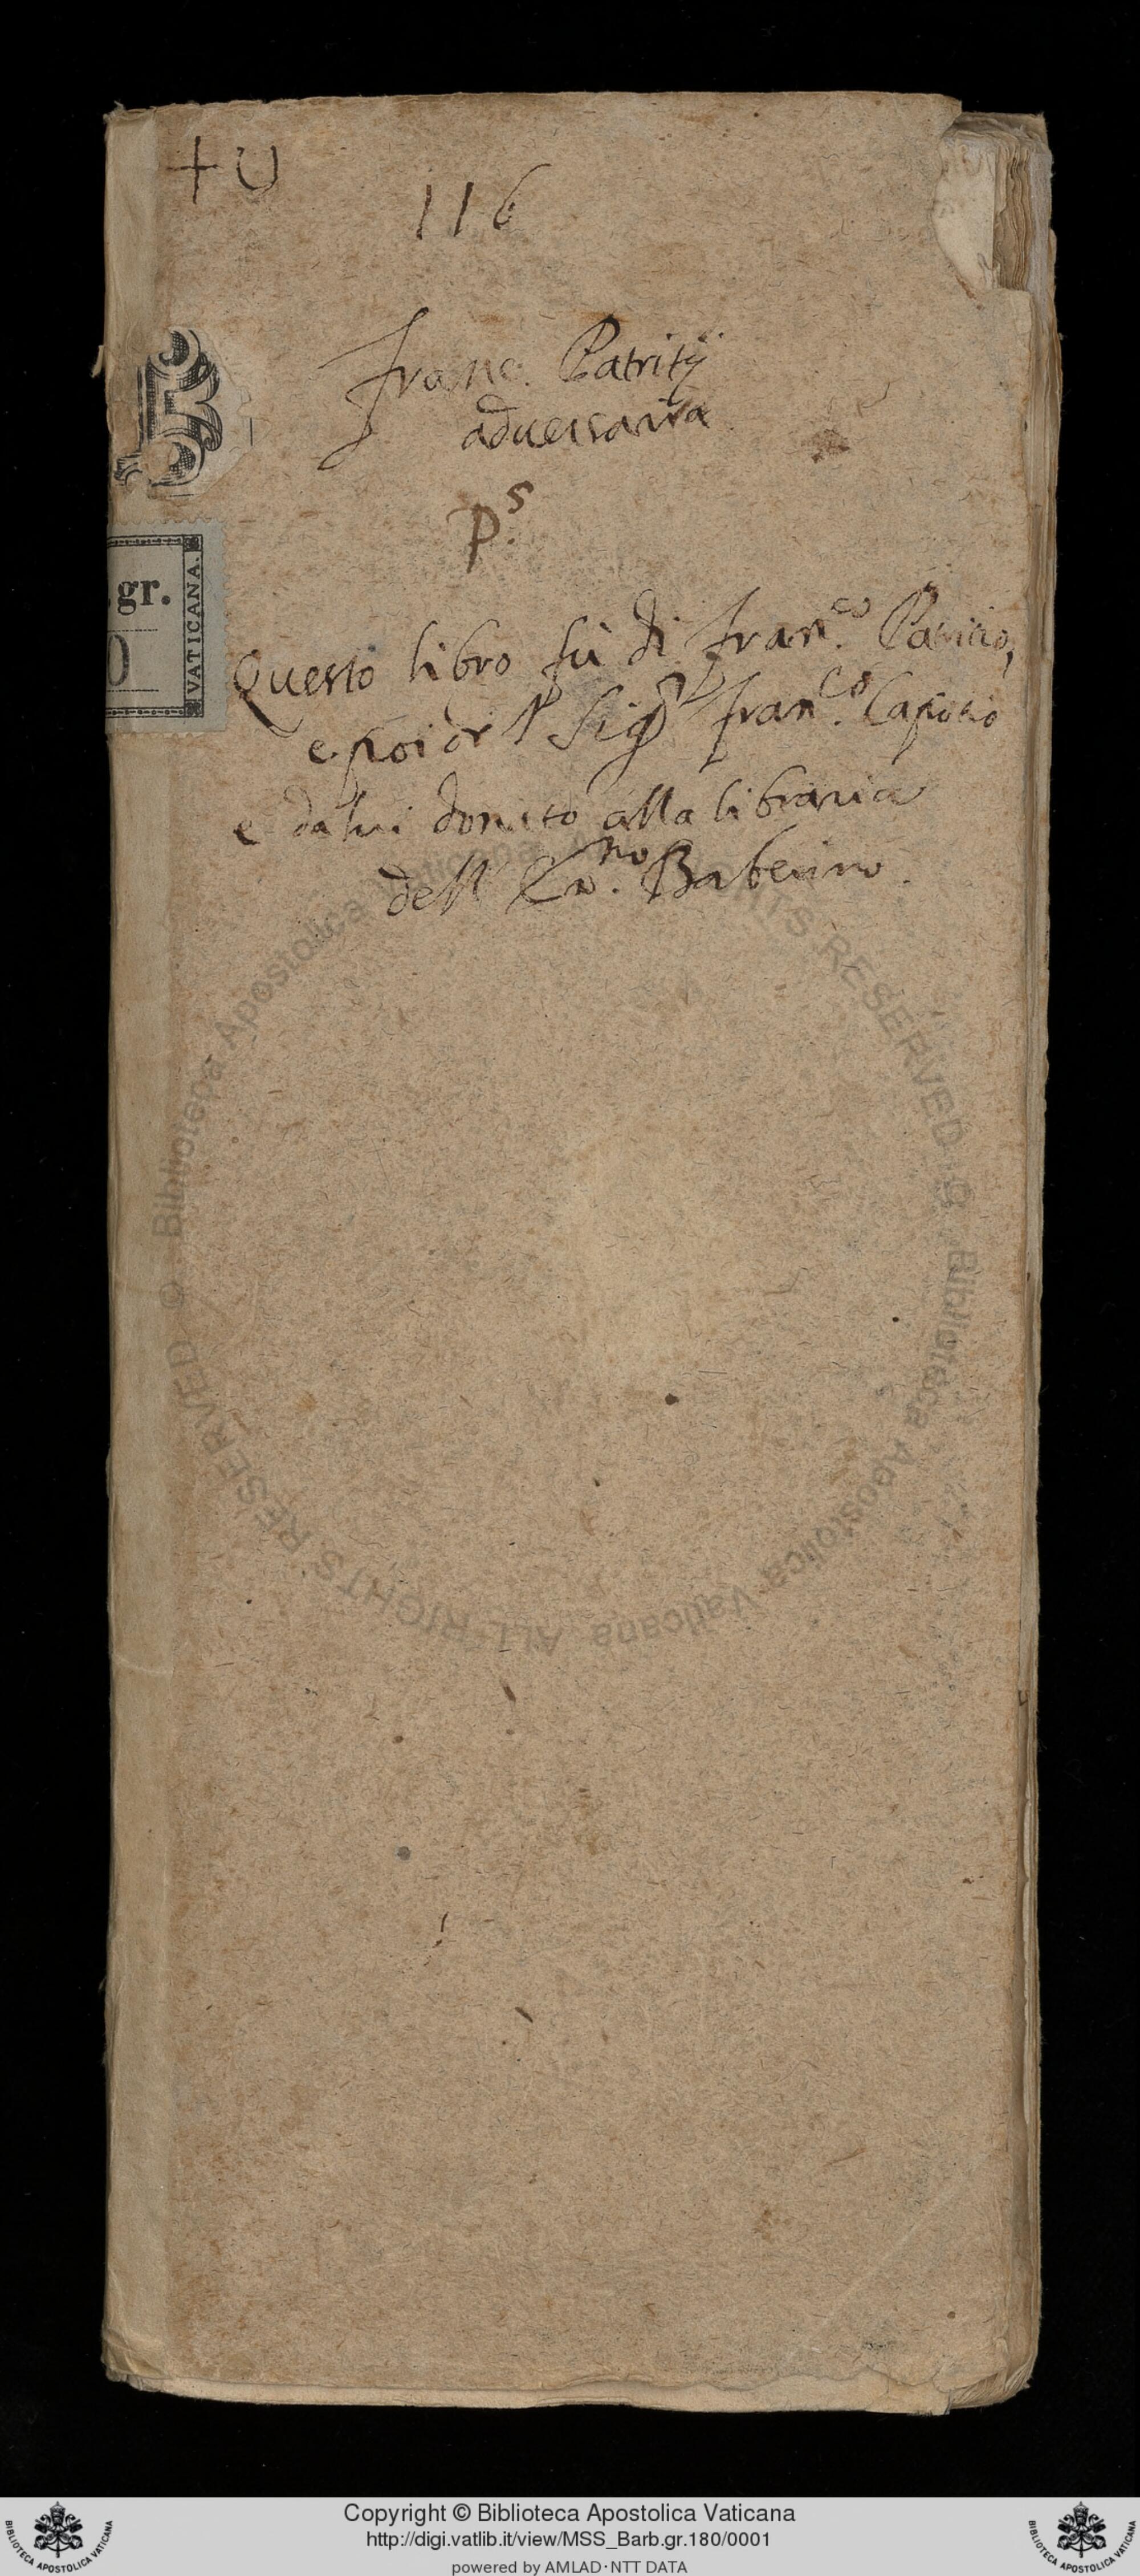 +U
116
Franc. Patritij
adversaria
P.s
B
gr.
0
VATICANA.
Questo libro fù di Fran.co Patricio,
e poi del Sig.r Fran.co
e da lui donato alla libraria
dell' Barberino.
© Biblioteca Apostolica Vaticana ALL RIGHTS RESERVED © Biblioteca Apostolica Vaticana ALL RIGHTS RESERVED
BIBLIOTECA APOSTOLICA VATICANA
Copyright © Biblioteca Apostolica Vaticana
http://digi.vatlib.it/view/MSS_Barb.gr.180/0001
powered by AMLAD·NTT DATA
BIBLIOTECA APOSTOLICA VATICANA